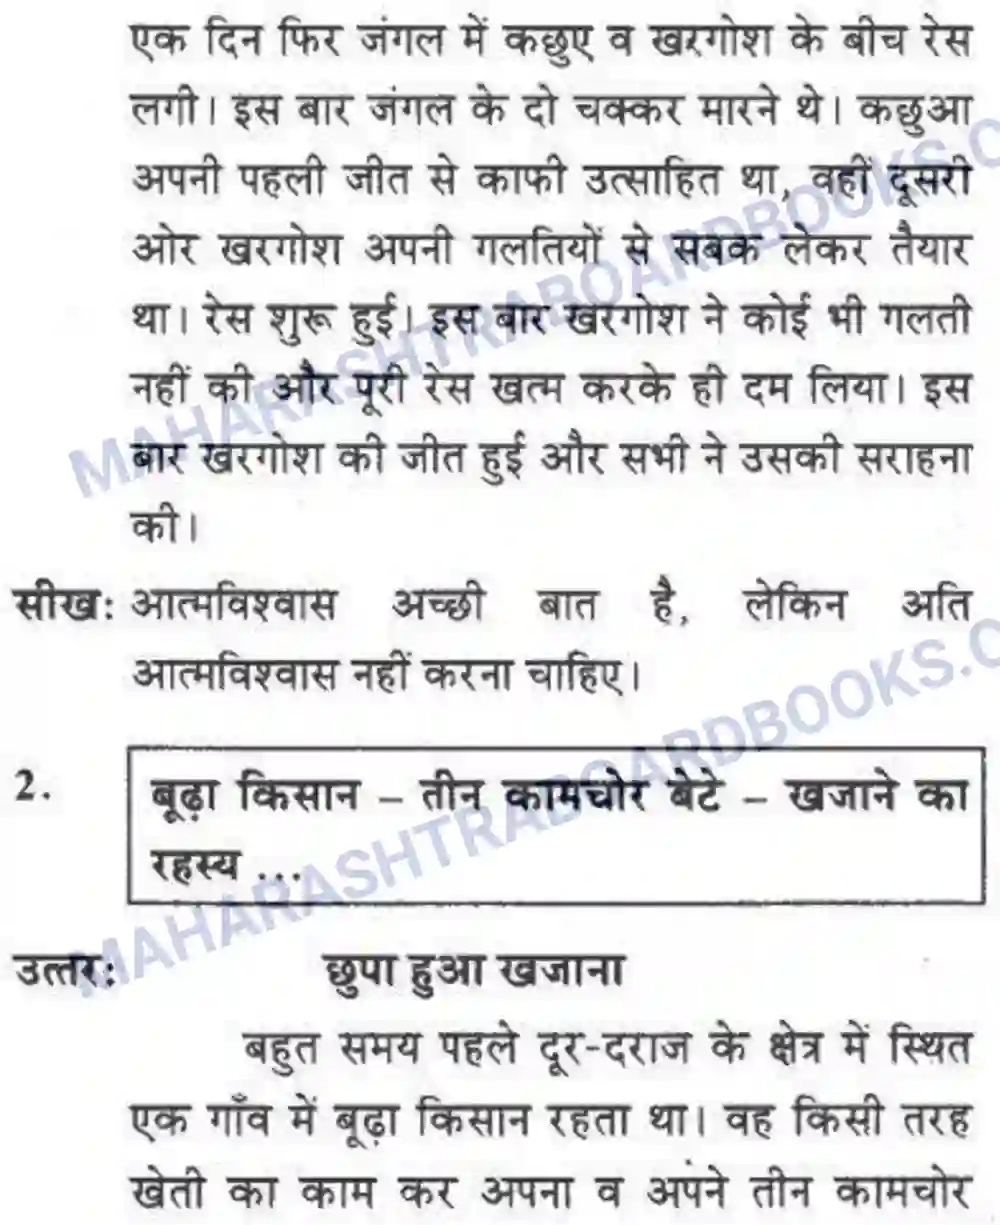 एक दिन फिर जंगल में कछुए व खरगोश के बीच रेस
लगी। इस बार जंगल के दो चक्कर मारने थे। कछुआ
अपनी पहली जीत से काफी उत्साहित था, वहीं दूसरी
ओर खरगोश अपनी गलतियों से सबक लेकर तैयार
था। रेस शुरू हुई। इस बार खरगोश ने कोई भी गलती
नहीं की और पूरी रेस खत्म करके ही दम लिया। इस
बार खरगोश की जीत हुई और सभी ने उसकी सराहना
की।
सीख: आत्मविश्वास अच्छी बात है, लेकिन अति
आत्मविश्वास नहीं करना चाहिए।
2. बूढ़ा किसान – तीन कामचोर बेटे – खजाने का
रहस्य ...
उत्तर: छुपा हुआ खजाना
बहुत समय पहले दूर-दराज के क्षेत्र में स्थित
एक गाँव में बूढ़ा किसान रहता था। वह किसी तरह
खेती का काम कर अपना व अपने तीन कामचोर
MAHARASHTRABOARDBOOKS.C
MAHARASHTRABOARDBOOKS.C